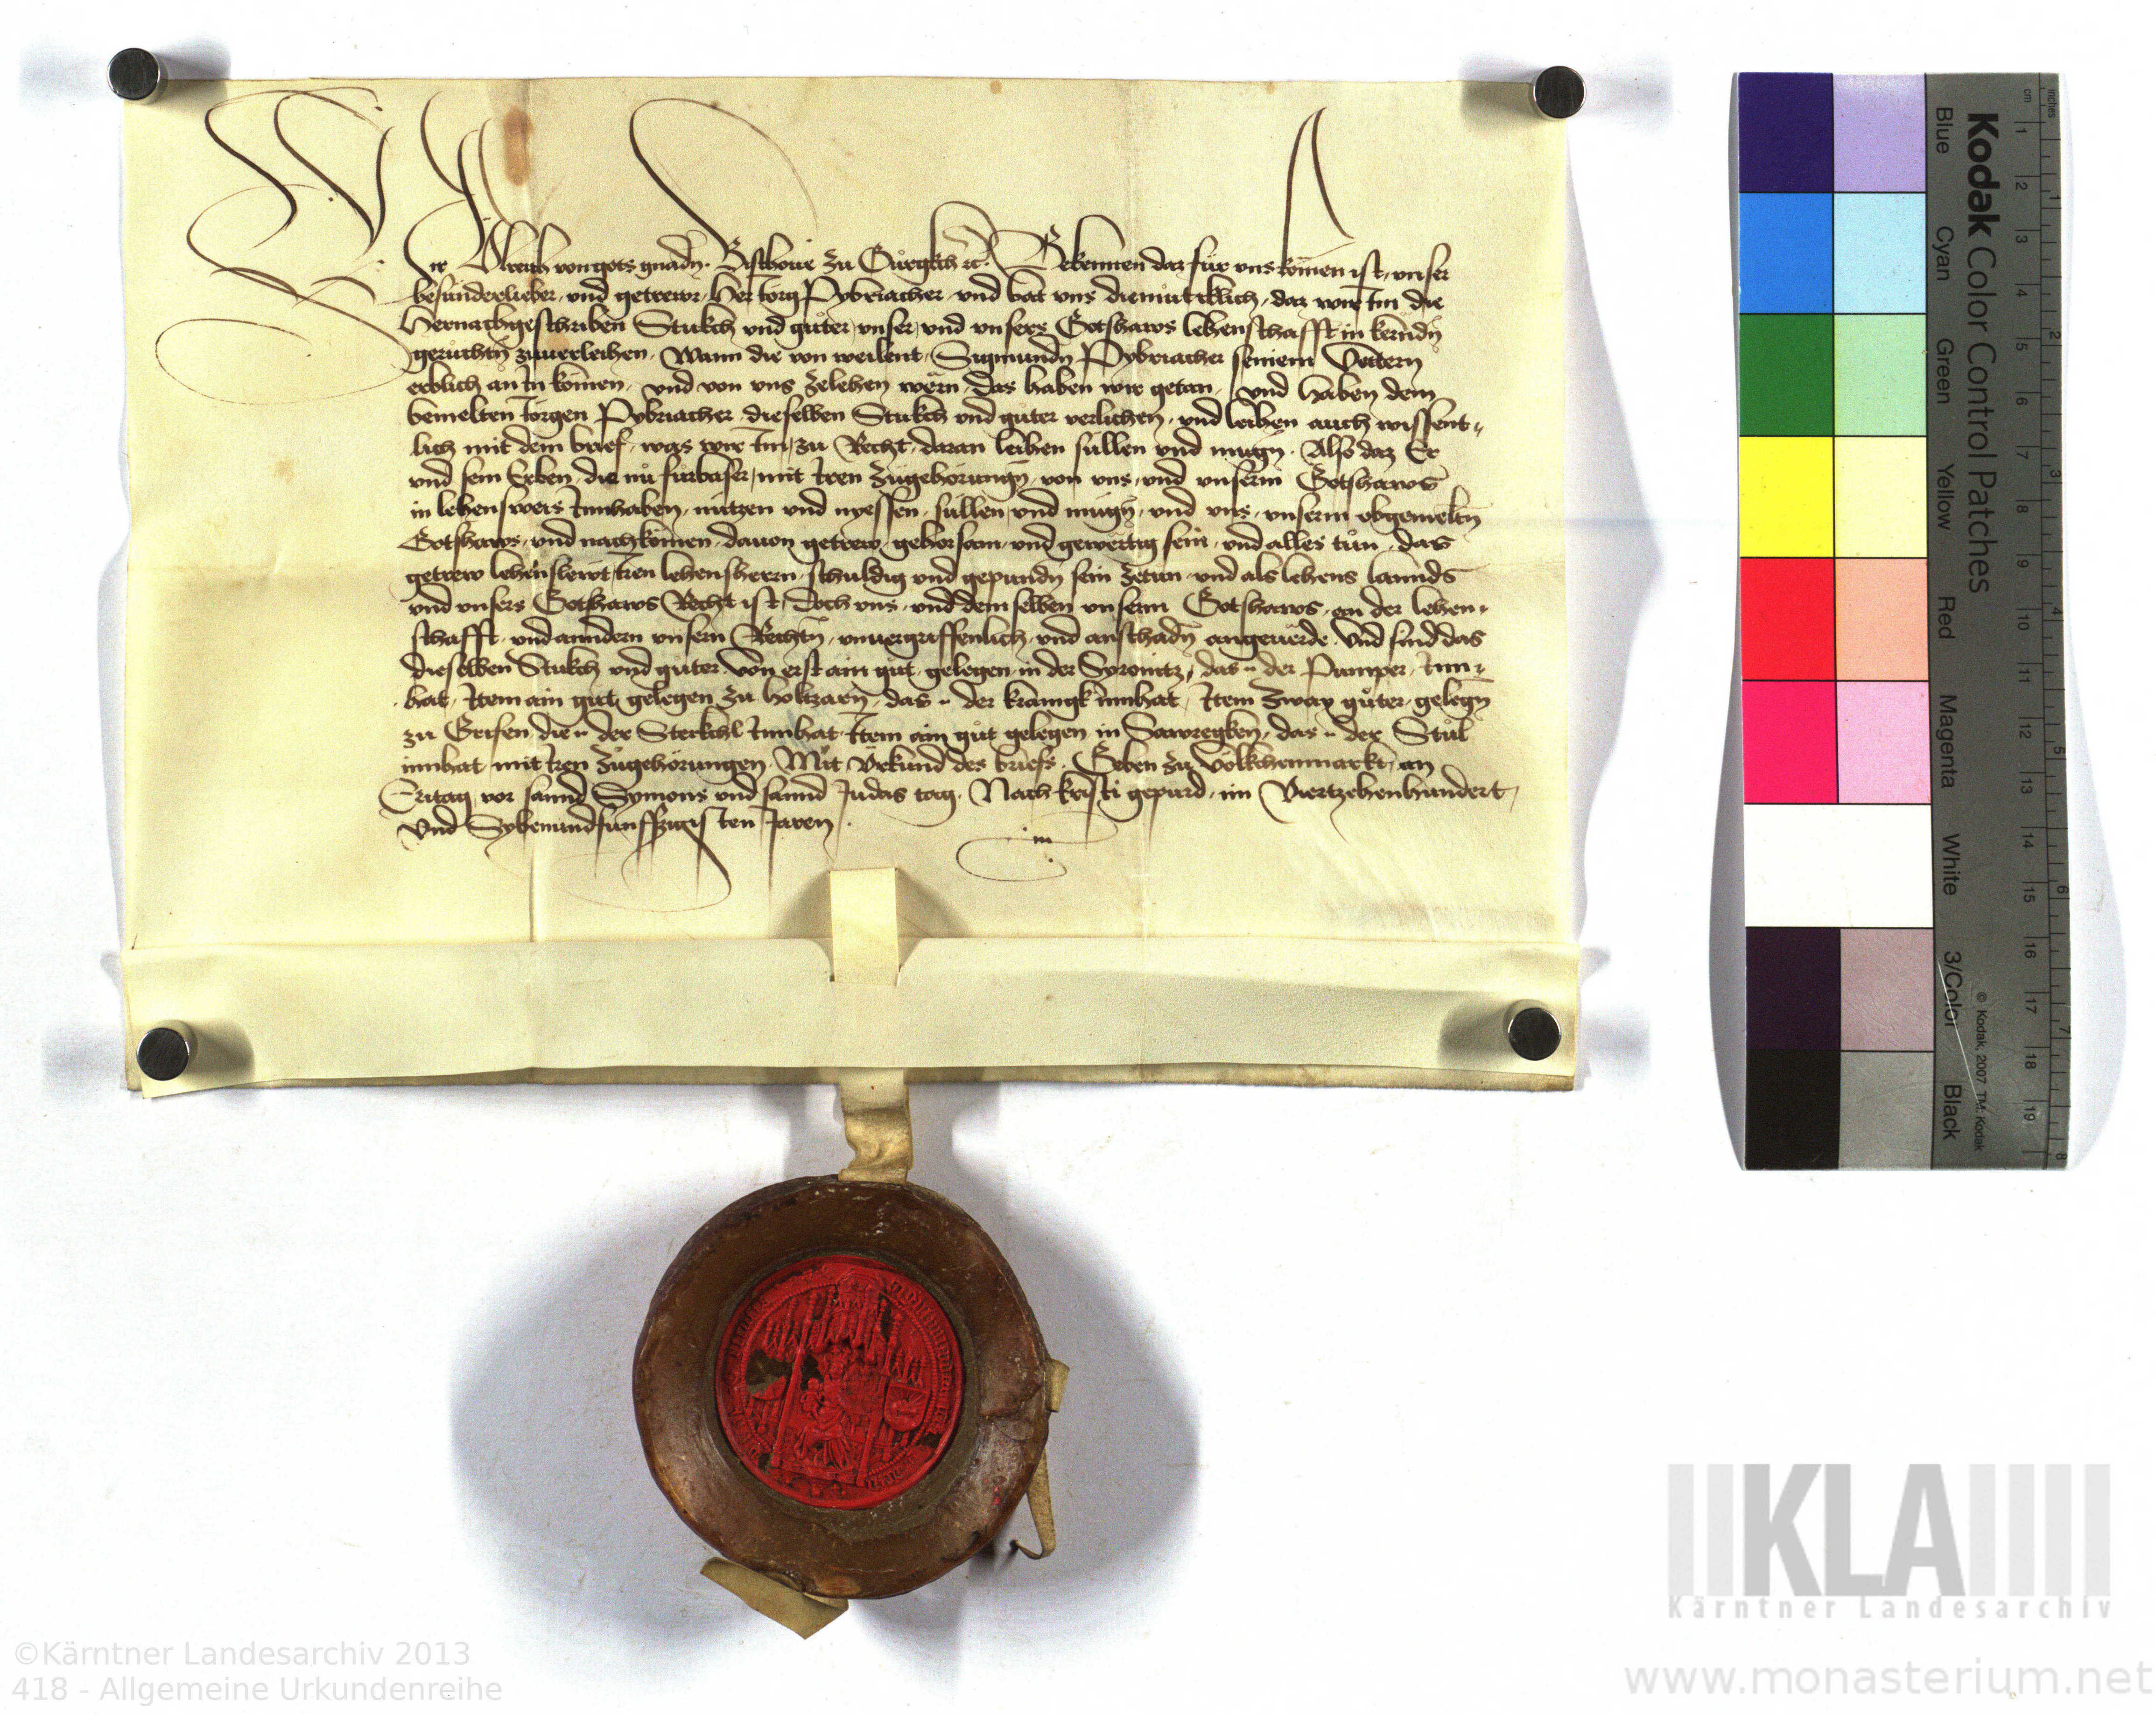 Wir Ulreich von gots gnadn. Bischoue zu Gurgkh etc. Bekennen daz für vns komen ist, vnser
besunderlieber, vnd getrewr, her Jorg Pybriacher, vnd bat vns diemutiklich, daz wir Im die
hernachgeschriben Stukch vnd güter, vnser, vnd vnsers Gotshaws lehenschafft in kerndn
geruchtn zuuerleihen, Wann die von weilent, Sigmundn Pybriacher seinem Vettern
erblich an In komen, vnd von vns zelehen wern, das haben wir getan, vnd haben dem
bemelten Jorgen Pybriacher dieselben Stukch vnd guter verlichen, vnd leihen auch wissent-
lich mit dem brief, was wir Im, zu Recht, daran leihen sullen vnd mugn. Also daz Er
vnd sein Erben, die nu fürbaser, mit Iren zugehorungn, von vns, vnd vnserm Gotshaws
in lehensweis Innhaben, nutzen vnd nyessen, sullen vnd mugn, vnd vns, vnserm obgemeltn
Gotshaws, vnd nachkomen, dauon getrew, gehorsam, vnd gewertig sein, vnd alles tun, das
getrew lehenslewt, Iren lehensherrn, schuldig vnd gepundn sein zetun, vnd als lehens lannds
vnd vnsers Gotshaws Recht ist, doch vns, vnd demselben vnserm Gotshaws, an der lehen-
schafft, vnd anndern vnsern Rechtn, vnuergriffenlich, vnd anschadn angeuerde. Vnd sind das
dieselben Stukch vnd guter. Von erst ain gut, gelegen, in der Syronitz, das der Pamper, Inn-
hat, Item ain gut gelegen zu holtzarn, das der kramgk innhat, Item zway guter, gelegn
zu Greifen, die der Sterkchl Innhat, Item ain gut gelegen in Sawregken, das der Stul
innhat mit Iren zugehorungen. Mit Vrkund des briefs. Geben zu Volkchenmarkt, an
Eritag vor sannd Symons vnd sannd Judas tag. Nach kristi gepurd, im Viertzehenhundert,
vnd Sybenundfunffzigisten Jaren.
Kodak Color Control Patches
Blue Cyan Green Yellow Red Magenta White 3/Color Black
© Kodak, 2007 TM: Kodak
inches 1 2 3 4 5 6 7 8
cm 1 2 3 4 5 6 7 8 9 10 11 12 13 14 15 16 17 18 19
KLA
Kärntner Landesarchiv
©Kärntner Landesarchiv 2013
418 - Allgemeine Urkundenreihe
www.monasterium.net